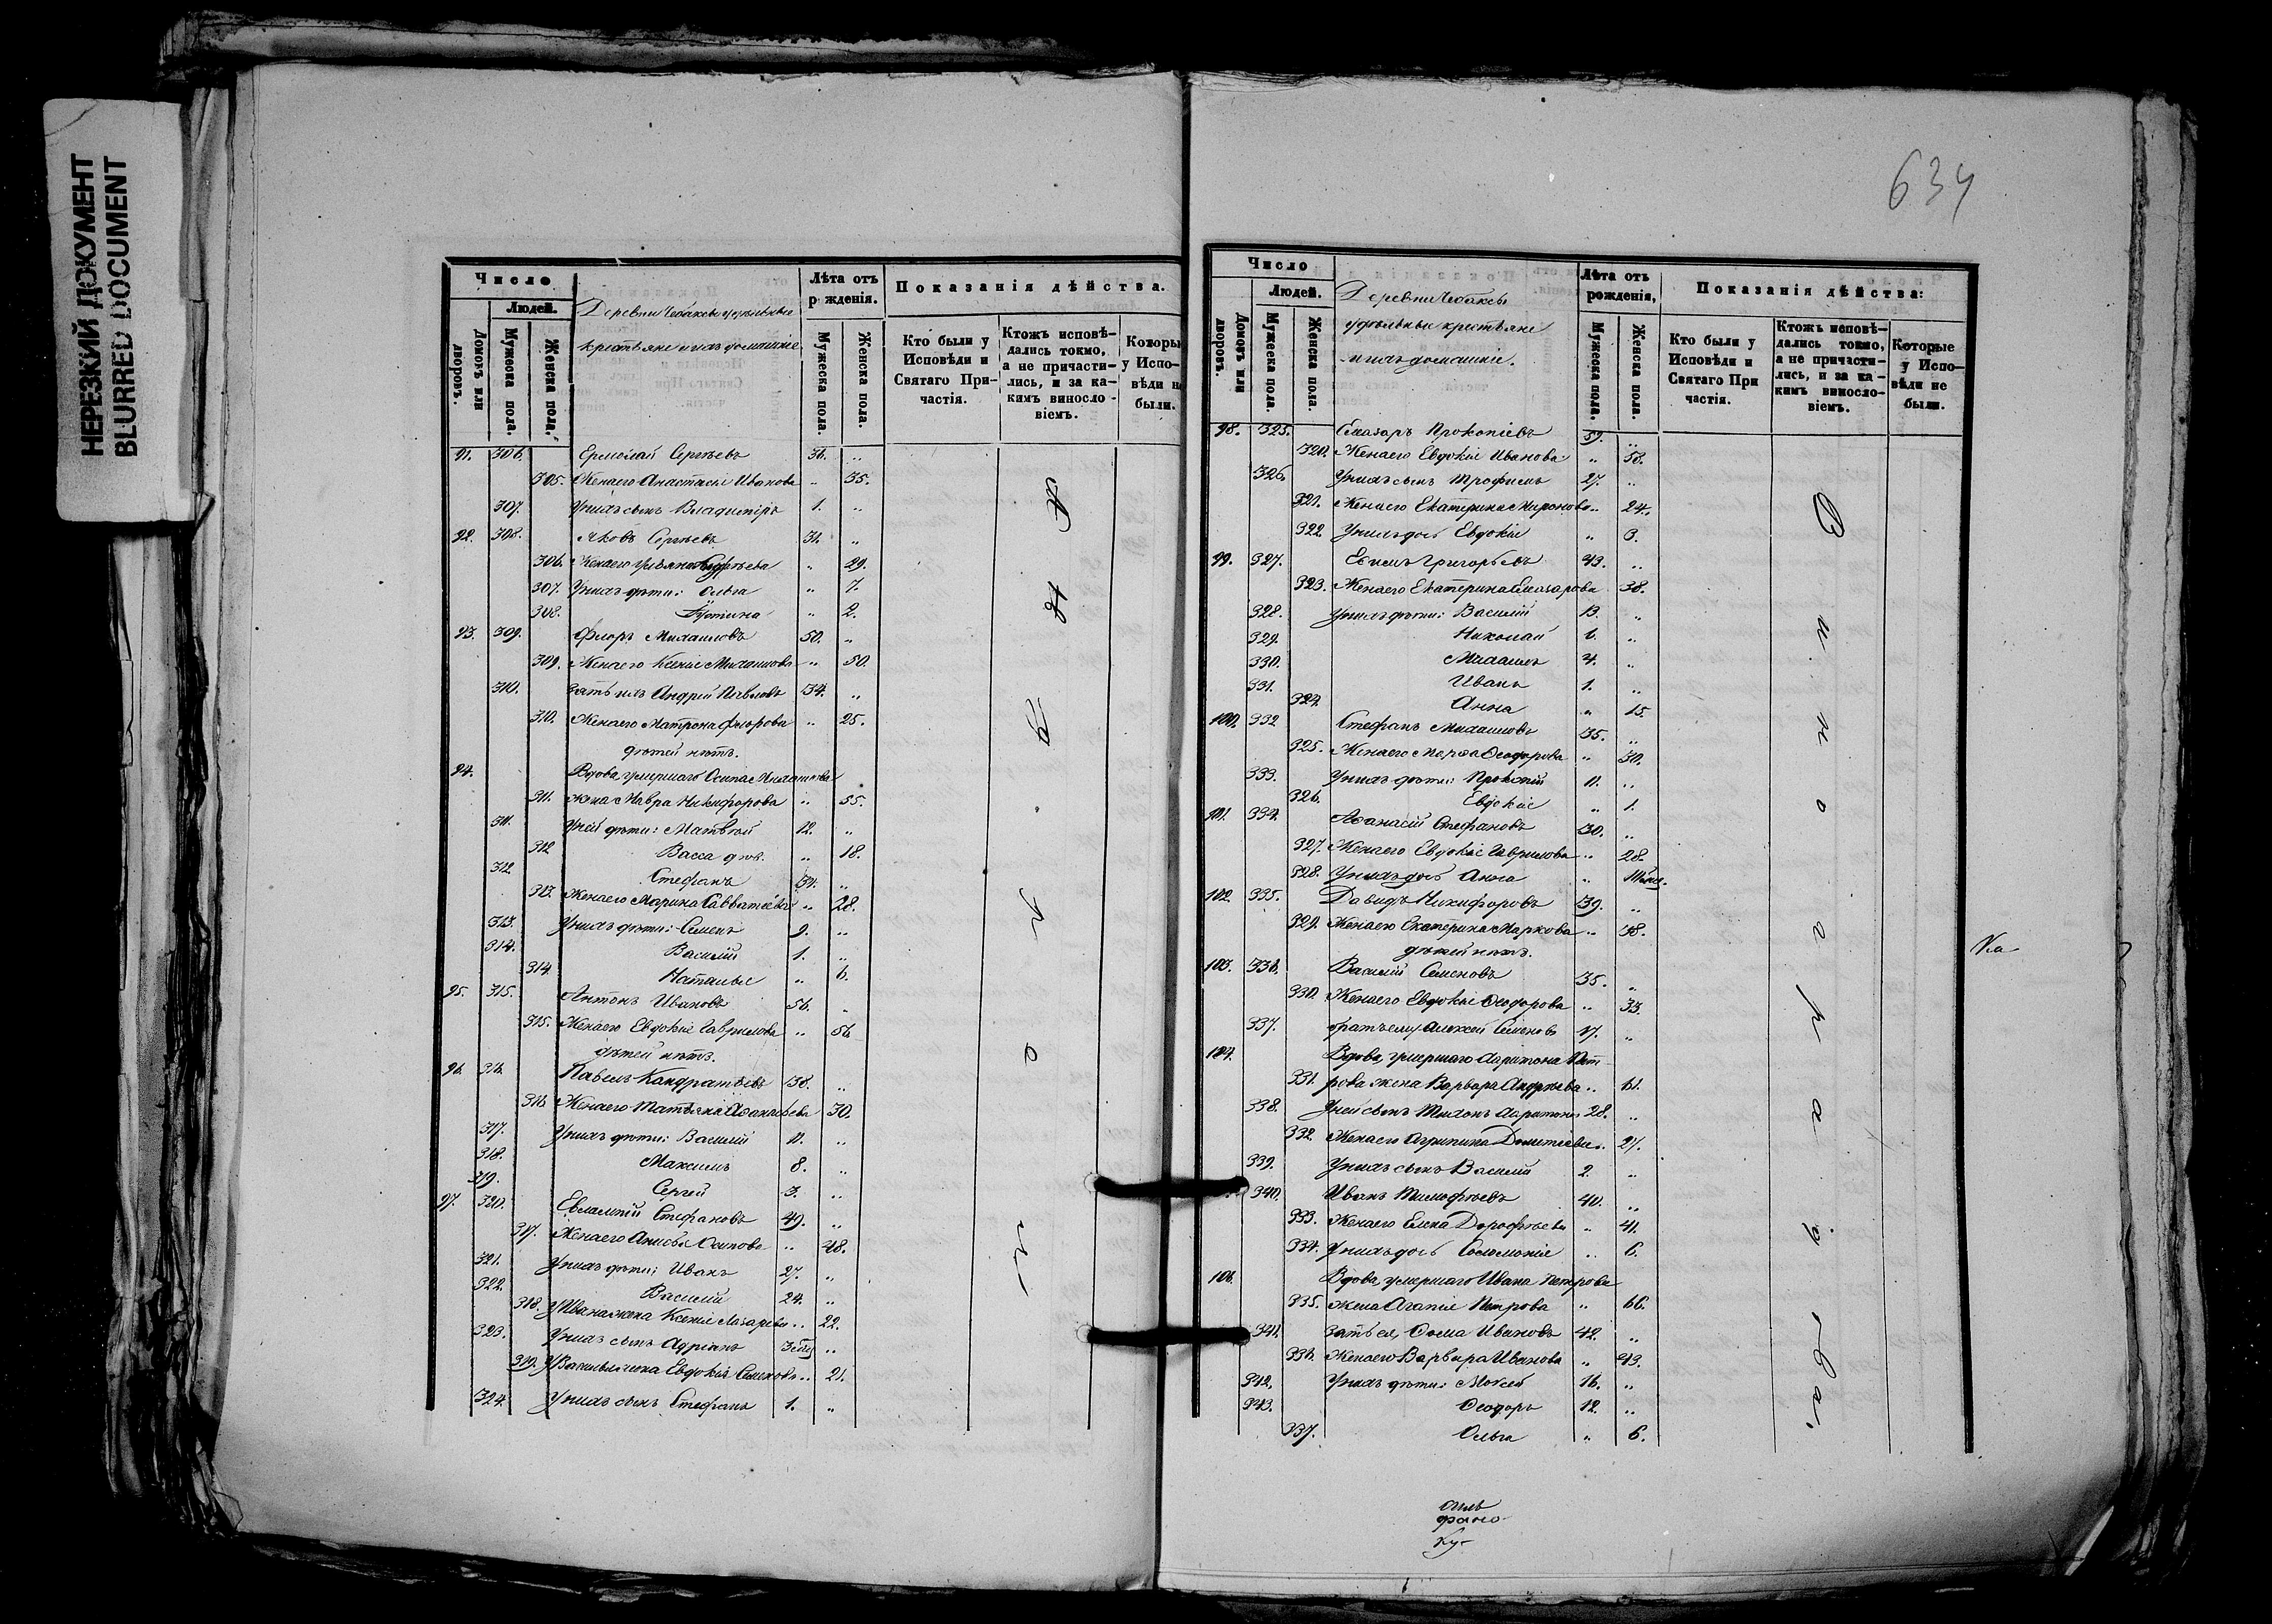 НЕРЕЗКИЙ ДОКУМЕНТ
BLURRED DOCUMENT
Число
Людей.
Домовъ или дворовъ.
Мужеска пола.
Женска пола.
Деревни Чебаксы удѣльные
крестьяне и ихъ домашніе
Лѣта отъ рожденія.
Мужеска пола.
Женска пола.
Показанія дѣйства.
Кто были у Исповѣди и Святаго Причастія.
Ктожъ исповѣдались токмо, а не причастились, и за какимъ винословіемъ.
Которы у Испо-вѣди н были.
91. 306. Ермолай Сергѣевъ 36. „
305. Жена его Анастасія Иванова „ 35.
307. У нихъ сынъ Владиміръ 1. „
92. 308. Яковъ Сергѣевъ 31. „
306. Жена его „ 29.
307. У нихъ дѣти: Ольга „ 7.
308. „ 2.
93. 309. Флоръ Михаиловъ 50. „
309. Жена его Ксенія Михаилова „ 50.
310. Зять ихъ Андрей Павловъ 34. „
310. Жена его Матрона Флорова „ 25.
дѣтей нѣтъ.
94. Вдова, умершаго Осипа Михаилова
311. жена Мавра Никифорова „ 55.
311. У ней дѣти: Матвѣй 12. „
312 Васса дѣв. „ 18.
312 Стефанъ 34. „
313. Жена его Марина Савватіева „ 28.
313. У нихъ дѣти: Семенъ 9. „
314. Василій 1. „
314. Наталья „ 6.
95. 315. Антонъ Ивановъ 56. „
315. Жена его Евдокія Гаврилова „ 56
дѣтей нѣтъ.
96. 316. Павелъ Кондратьевъ 38. „
316 Жена его Татьяна Аѳанасьева 30.
317. У нихъ дѣти: Василій 11. „
318. Максимъ 8. „
319. Сергей 3. „
97. 320. Евлампій Стефановъ 49. „
317. Жена его Анисья Осипова „ 48.
321. У нихъ дѣти: Иванъ 27. „
322. Василій 24. „
318. У Ивана жена Ксенія Лазарева „ 22.
323. У нихъ сынъ Адріанъ „
319. У Василья жена Евдокія Семенова „ 21.
324. У нихъ сынъ Стефанъ 1. „
634
Число
Людей.
Домовъ или дворовъ.
Мужеска пола.
Женска пола.
Деревни Чебаксы
удѣльные крестьяне
и ихъ домашніе.
Лѣта отъ рожденія,
Мужеска пола.
Женска пола.
Показанія дѣйства:
Кто были у Исповѣди и Святаго При частія.
Ктожъ исповѣдались токмо, а не причастились, и за какимъ винословіемъ.
Которые у Исповѣди не были.
98. 325. Елазаръ Прокопіевъ 59. „
320. Жена его Евдокія Иванова „ 58.
326. У нихъ сынъ Трофимъ 27. „
321. Жена его Екатерина Миронова „ 24.
322 У нихъ дочь Евдокія „ 3.
99. 327. Евѳимъ Григорьевъ 43. „
323. Жена его Екатерина Елазарова 38.
328. У нихъ дѣти: Василій 13. „
329. Николай 6. „
330. Михаилъ 4. „
331. Иванъ 1. „
324. Анна „ 15.
100. 332 Стефанъ Михаиловъ 35. „
325. Жена его Марѳа Ѳеодорова „ 30.
333. У нихъ дѣти: Прокопій 11. „
326. Евдокія „ 1.
101. 334. Аѳанасій Стефановъ 30. „
327. Жена его Евдокія Гаврилова „ 28.
328. У нихъ дочь Анна „
102. 335. Давидъ Никифоровъ 39. „
329. Жена его Екатерина Маркова „ 38.
дѣтей нѣтъ.
103. 336. Василій Семеновъ 35. „
330. Жена его Евдокія Ѳеодорова „ 33.
337. братъ ему Алексей Семеновъ 17. „
104. Вдова, умершаго Харитона Пет
331. рова жена Варвара Андреева „ 61.
338. У ней сынъ Тихонъ Харитоновъ 28. „
332 Жена его Агрипина Дометіева „ 27.
339. У нихъ сынъ Василій 2. „
340. Иванъ Тимофѣевъ 40. „
333. Жена его Елена Дорофѣева „ 41.
334. У нихъ дочь Соломонія „ 6.
106. Вдова, умершаго Ивана Петрова
335. жена Агапія Петрова „ 66.
341. Зять ея, Ѳома Ивановъ 42. „
336. Жена его Варвара Иванова „ 43.
342. У нихъ дѣти: Моисей 16. „
343. Ѳеодоръ 12. „
337. Ольга „ 6.